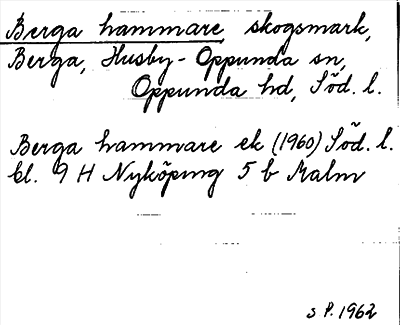 Berga hammare, skogsmark,
Berga, Husby-Oppunda sn,
Oppunda hd, Söd. l.
Berga hammare ek (1960) Söd. l.
bl. 9 H Nyköping 5 b Malm
s P. 1962